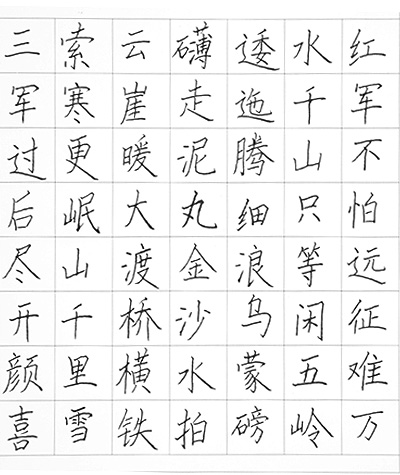 红军不怕远征难万
水千山只等闲五岭
逶迤腾细浪乌蒙磅
礴走泥丸金沙水拍
云崖暖大渡桥横铁
索寒更岷山千里雪
三军过后尽开颜喜